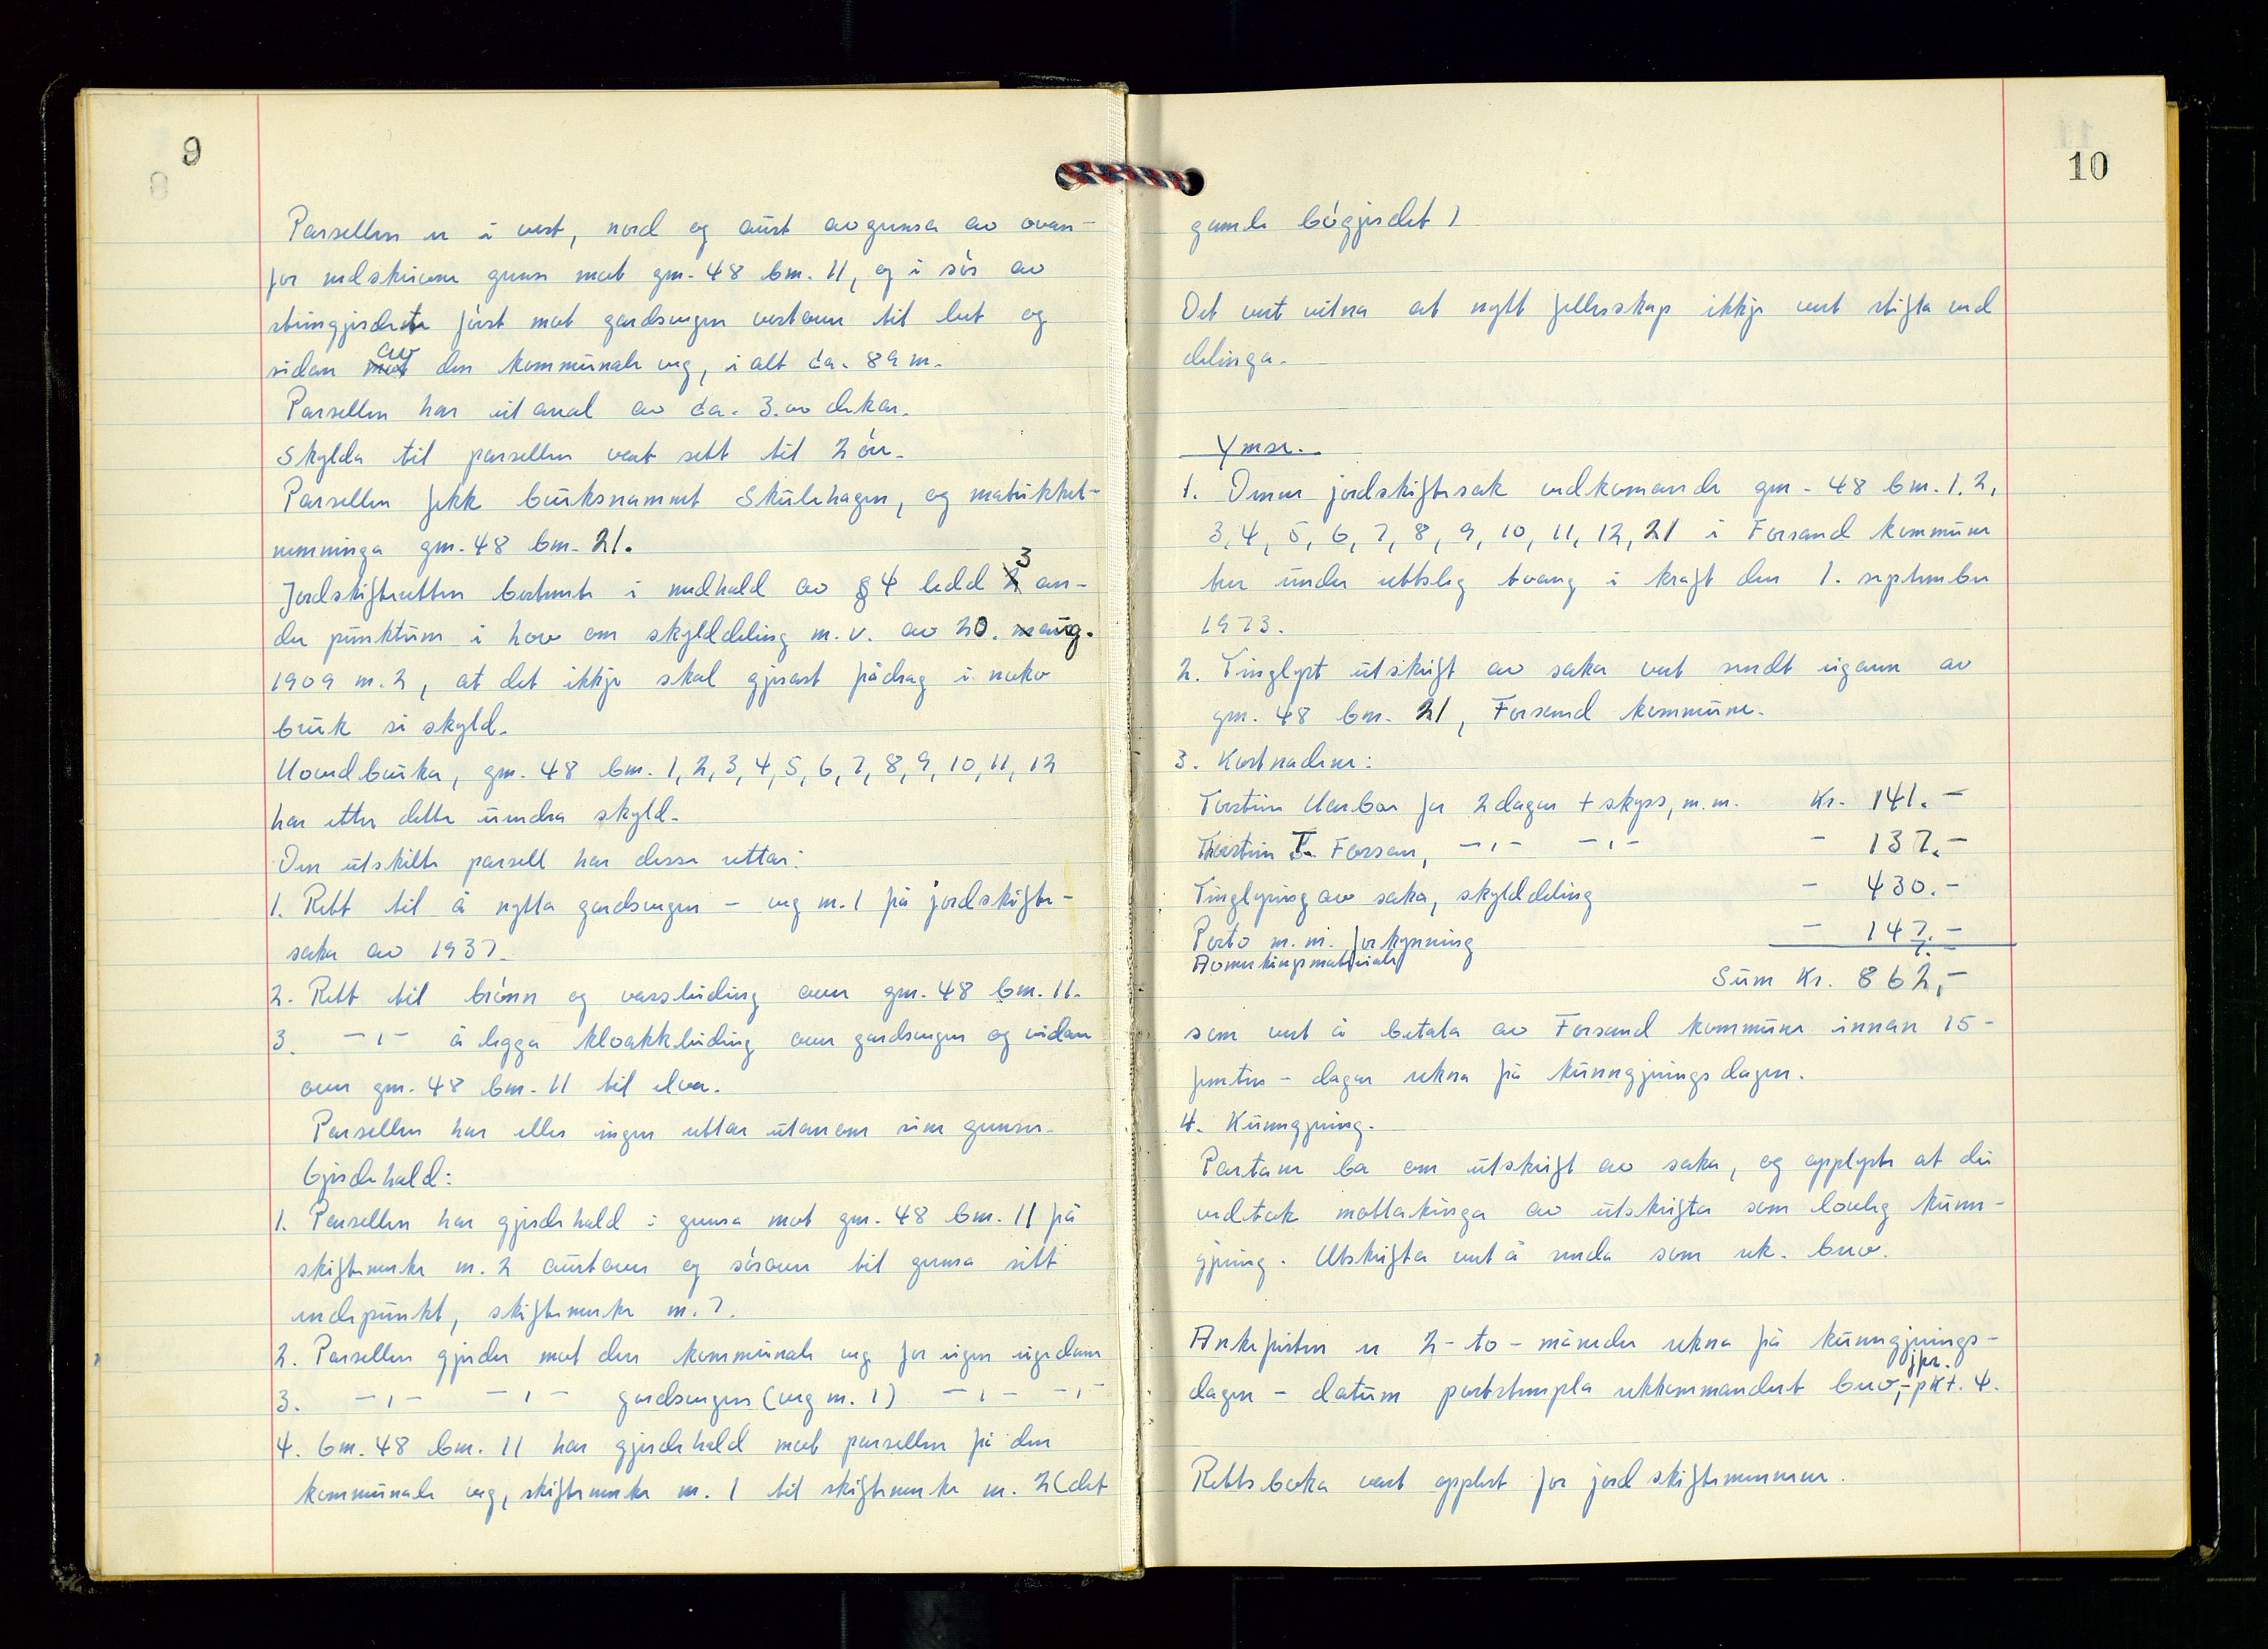 9
Parsellen er i vest, nord og aust avgrensa av ovan-
for nedskrivne grense mot gnr. 48 bnr. 11, og i sør av
steingjerdete først mot gardsvegen vestover til led og
sidan av den kommunale veg, i alt ca. 89 m.
Parsellen har eit areal av ca. 3.00 dekar.
Skylda til parsellen vert sett til 2 øre.
Parsellen fekk bruksnamnet Skulehagen, og matrikkel-
nemninga gnr. 48 bnr. 21.
Jordskifteretten bestemte i medhald av § 4 ledd 3 an-
dre punktum i lov om skylddeling m.v. av 20. aug.
1909 nr. 2, at det ikkje skal gjerast frådrag i noko
bruk si skyld.
Hovudbruka, gnr. 48 bnr. 1, 2, 3, 4, 5, 6, 7, 8, 9, 10, 11, 12
har etter dette uendra skyld.
Den utskilte parsell har desse rettar:
1. Rett til å nytta gardsvegen - veg nr. 1 på jordskifte-
saka av 1937.
2. Rett til brønn og vassleiding over gnr. 48 bnr. 11.
3. -"- å legga kloakkleiding over gardsvegen og vidare
over gnr. 48 bnr. 11 til elva.
Parsellen har elles ingen rettar utanom sine grenser.
Gjerdehald:
1. Parsellen har gjerdehald i grensa mot gnr. 48 bnr. 11 frå
skiftemerke nr. 2 austover og sørover til grensa sitt
endepunkt, skiftemerke nr. 7.
2. Parsellen gjerder mot den kommunale veg for eigen eigedom
3. -"- -"- gardsvegen (veg nr. 1) -"- -"-
4. Gnr. 48 bnr. 11 har gjerdehald mot parsellen frå den
kommunale veg, skiftemerke nr. 1 til skiftemerke nr. 2 (det
10
gamle bøgjerdet)
Det vert vitna at nytt fellesskap ikkje vert stifta ved
delinga.
Ymse.
1. Denne jordskiftesak vedkomande gnr. 48 bnr. 1, 2,
3, 4, 5, 6, 7, 8, 9, 10, 11, 12, 21 i Forsand kommune
ter under rettsleg tvang i kraft den 1. september
1973.
2. Tinglyst utskrift av saka vert sendt eigaren av
gnr. 48 bnr. 21, Forsand kommune.
3. Kostnadene:
Torstein Haabor for 2 dagar + skyss, m.m. Kr. 141.-
Thorstein T. Forsan, -"- -"- - 137.-
Tinglysing av saka, skylddeling - 430.-
Porto m.m. forkynning - 147.-
Avmerkingsmateriale 7.-
Sum Kr. 862,-
som vert å betala av Forsand kommune innan 15 -
femten - dagar rekna frå kunngjeringsdagen.
4. Kunngjering.
Partane ba om utskrift av saka, og opplyste at dei
vedtok mottakinga av utskrifta som lovleg kunn-
gjering. Utskrifta vert å senda som rek. brev.
Ankefristen er 2 - to - månader rekna frå kunngjerings-
dagen - datum poststempla rekkommandert brev, - jfr. pkt. 4.
Rettsboka vert opplest for jordskiftemennene.